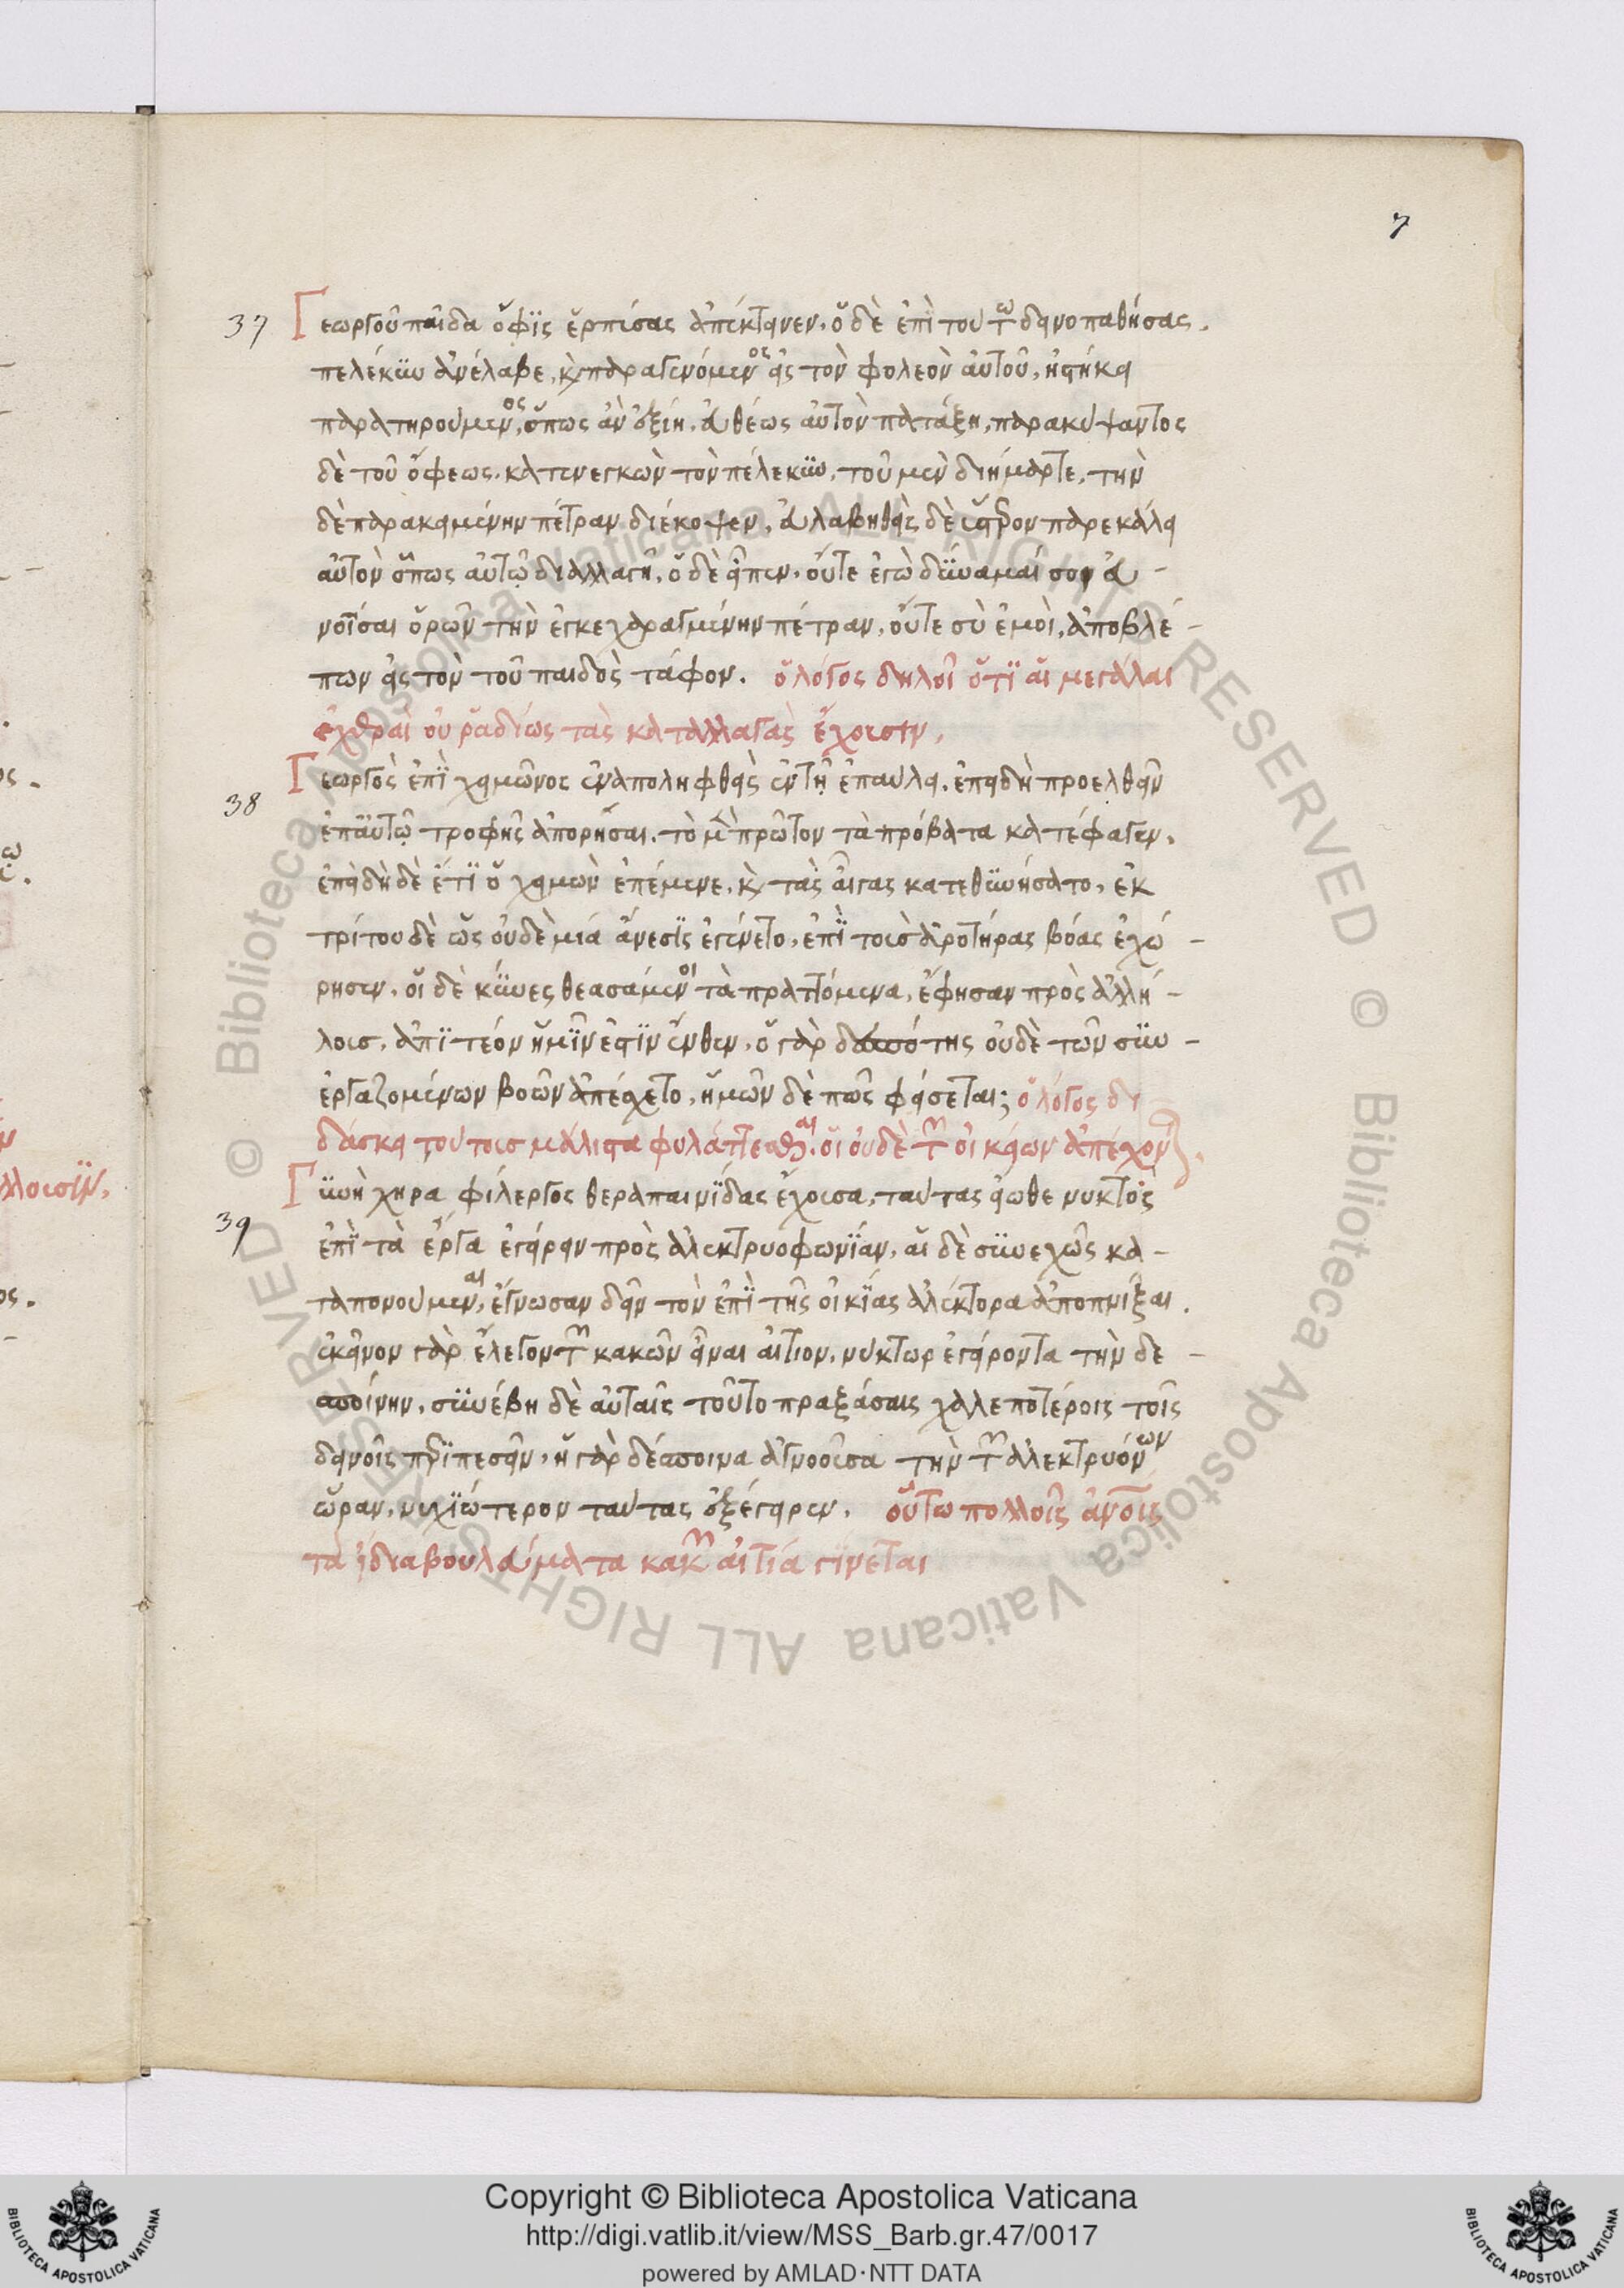 7
37 Γεωργοῦ παῖδα ὄφϊς ἑρπύσας ἀπέκτεινεν, ὁ δὲ ἐπὶ τούτω δεινοπαθήσας.
πέλεκϋν ἀνέλαβε, καὶ παραγενόμενος εἰς τὸν φολεὸν αὐτοῦ, εἱστήκει
παρατηρούμενος, ὅπως ἂν ἐξίῃ, εὐθέως αὐτὸν πατάξῃ, παρακύψαντος
δὲ τοῦ ὄφεως, κατενεγκὼν τὸν πέλεκϋν, τοῦ μὲν διήμαρτε, τὴν
δὲ παρακειμένην πέτραν διέκοψεν, εὐλαβηθεὶς δὲ ὕστερον παρεκάλει
αὐτὸν ὅπως αὐτῷ διαλλαγῇ, ὁ δὲ εἶπεν, οὔτε ἐγὼ δύναμαί σοι εὐ-
νοῆσαι ὁρῶν τὴν ἐγκεχαραγμένην πέτραν, οὔτε σὺ ἐμοὶ, ἀποβλέ-
πων εἰς τὸν τοῦ παιδὸς τάφον. ὁ λόγος δηλοῖ ὅτϊ αἱ μεγάλαι
ἔχθραι οὐ ῥαδίως τὰς καταλλαγὰς ἔχουσιν,
38 Γεωργὸς ἐπῒ χειμῶνος ἐναποληφθεὶς ἐν τῇ ἐπαύλει, ἐπειδὴ προελθεῖν
ἐπ' αὐτῷ τροφῆς ἀπορῆσαι, τὸ μὲν πρῶτον τὰ πρόβατα κατέφαγεν,
ἐπειδὴ δὲ ἔτϊ ὁ χειμὼν ἐπέμενε, καὶ τὰς αἶγας κατεθϋνήσατο, ἐκ
τρίτου δὲ ὡς οὐδὲ μιά ἄνεσϊς ἐγένετο, ἐπῒ τοὺσ ἀροτήρας βόας ἐχώ-
ρησεν, οἱ δὲ κΰνες θεασάμενοι τὰ πραττόμενα, ἔφησαν πρὸς ἀλλή-
λουσ, ἀπϊτέον ἡμῖν ἐστϊν ἔνθεν, ὁ γὰρ δεσπότης οὐδὲ τῶν σϋν-
εργαζομένων βοῶν ἀπέσχετο, ἡμῶν δὲ πῶς φείσεται; ὁ λόγος δι
δάσκει τούτουσ μάλιστα φυλάττεσθαι, οἳ οὐδὲ τῶν οἰκείων ἀπέχονται.
39 Γϋνὴ χήρα φίλεργος θεραπαινϊδας ἔχουσα, ταύτας εἴωθε νυκτὸς
ἐπῒ τὰ ἔργα ἐγείρειν πρὸς ἀλεκτρυοφωνΐαν, αἱ δὲ σϋνεχῶς κα-
ταπονούμεναι, ἔγνωσαν δεῖν τὸν ἐπῒ τῆς οἰκΐας ἀλέκτορα ἀποπνίξαι.
ἐκεῖνον γὰρ ἔλεγον τῶν κακῶν εἶναι αἴτιον, νύκτωρ ἐγείροντα τὴν δέ-
σποίνην, σϋνέβη δὲ αὐταῖς τοῦτο πραξάσαις χαλεποτέροις τοῖς
δεινοῖς περϊπεσεῖν, ἡ γὰρ δέσποινα ἀγνοοῦσα τὴν τῶν ἀλεκτρυόνων
ὥραν, νυχϊώτερον ταύτας ἐξέγειρεν. οὕτω πολλοῖς ἀνοις
τὰ ἴδια βουλεύματα κακῶν αἰτία γΐνεται
Copyright © Biblioteca Apostolica Vaticana
http://digi.vatlib.it/view/MSS_Barb.gr.47/0017
powered by AMLAD·NTT DATA